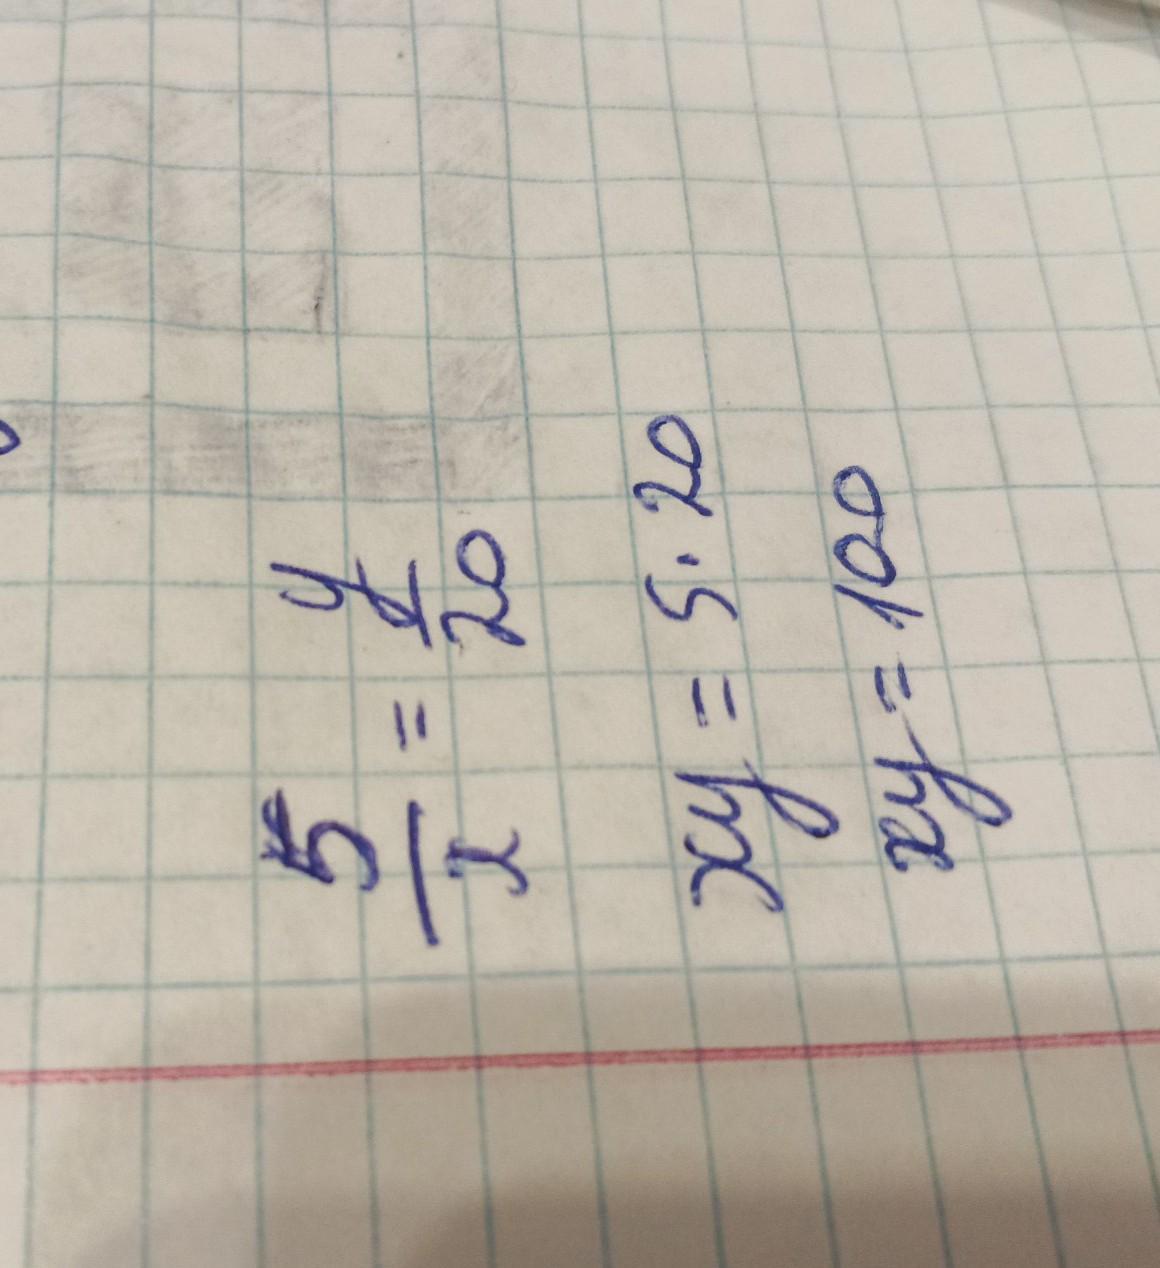 5/x = y/20
xy = 5 · 20
xy = 100